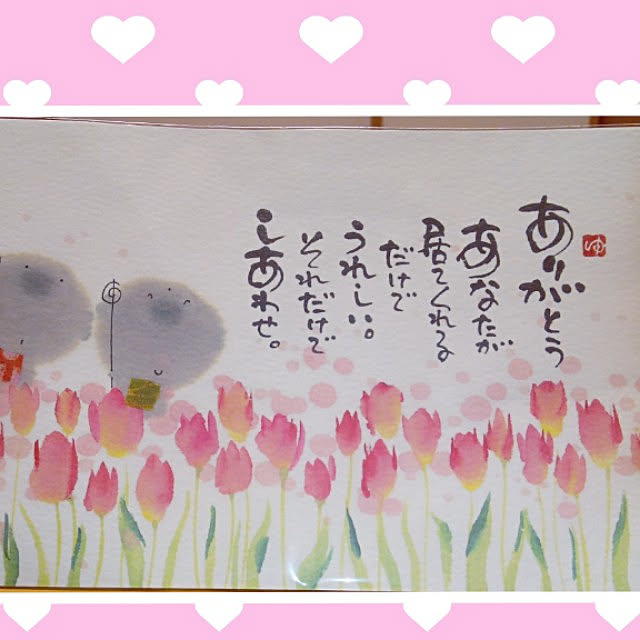 ゆ
ありがとう
あなたが
居てくれる
だけで
うれしい。
それだけで
しあわせ。